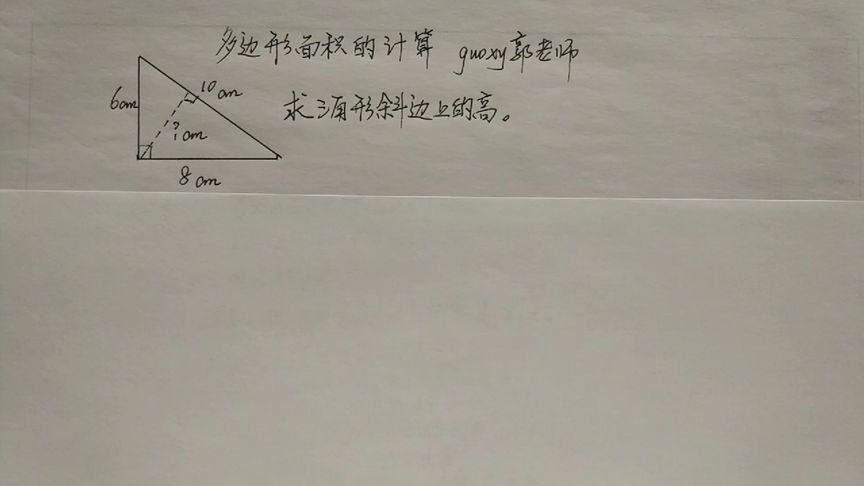 多边形面积的计算 guoxy郭老师
求三角形斜边上的高。
6cm
10cm
?cm
8cm